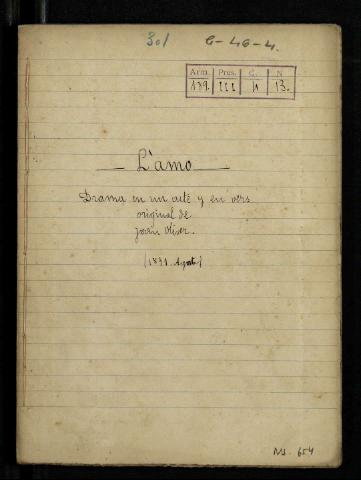 301 C-46-4.
Arm. Pres. C. N
139. III 4 13.
L'amo
Drama en un acte y en vers
original de
Joan Oliver.
(1891. Agost)
MS. 654